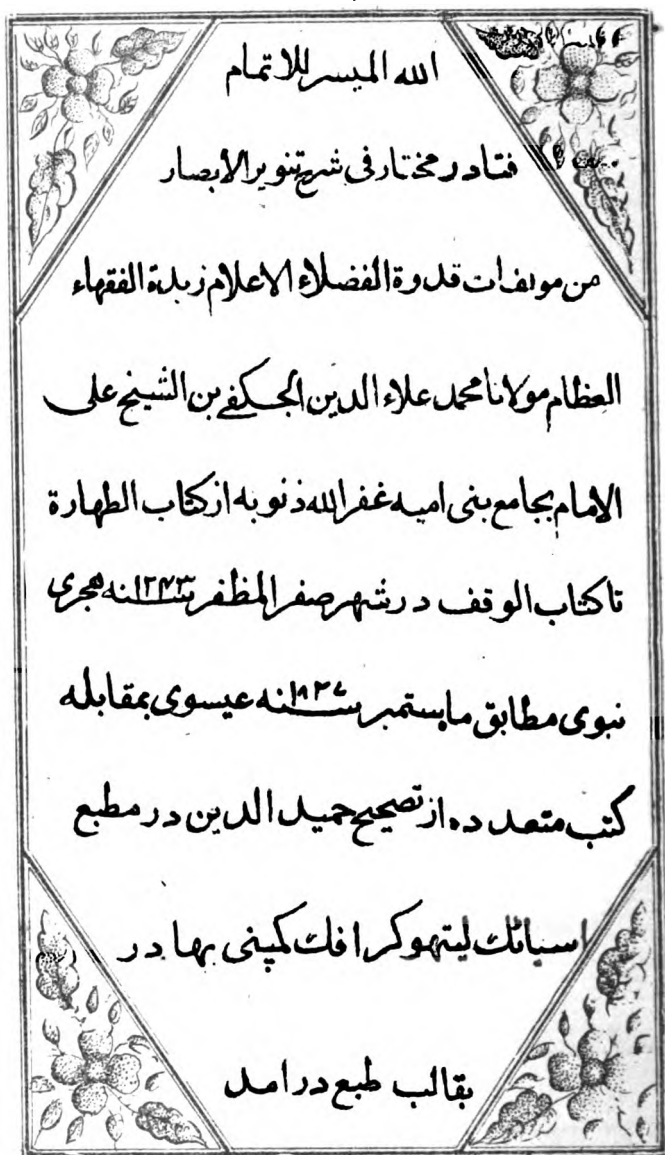 الله الميسر للاتمام
فتادر مختار فى شرح تنوير الابصار
من مولفات قدوة الفضلاء الاعلام زبدة الفقهاء
العظام مولانا محمد علاء الدين الحسكفے بن الشيخ على
الامام بجامع بنى اميه غفر الله ذنوبه از كتاب الطهارة
تا كتاب الوقف در شهر صفر المظفر سنه ۱۲۴۳ هجرى
نبوى مطابق ماه ستمبر سنه ۱۸۲۷ عيسوى بمقابله
كتب متعدده از تصحيح حميد الدين در مطبع
اسياتك ليتهوكرافك كمپنى بهادر
بقالب طبع در امد